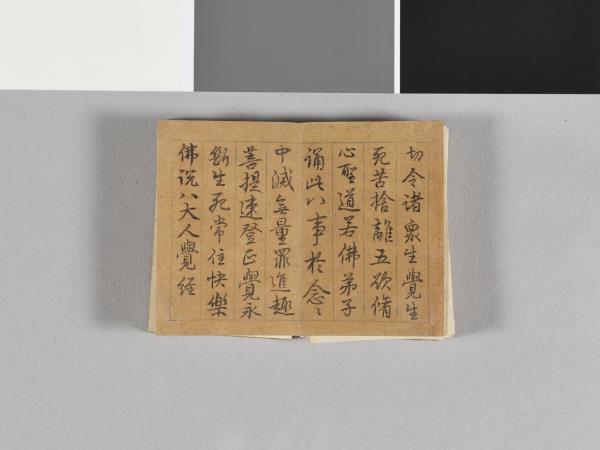 切令诸眾生覺生
死苦捨離五欲脩
心聖道若佛弟子
誦此八事於念〻
中滅無量罪進趣
菩提速登正覺永
斷生死常住快樂
佛说八大人覺經